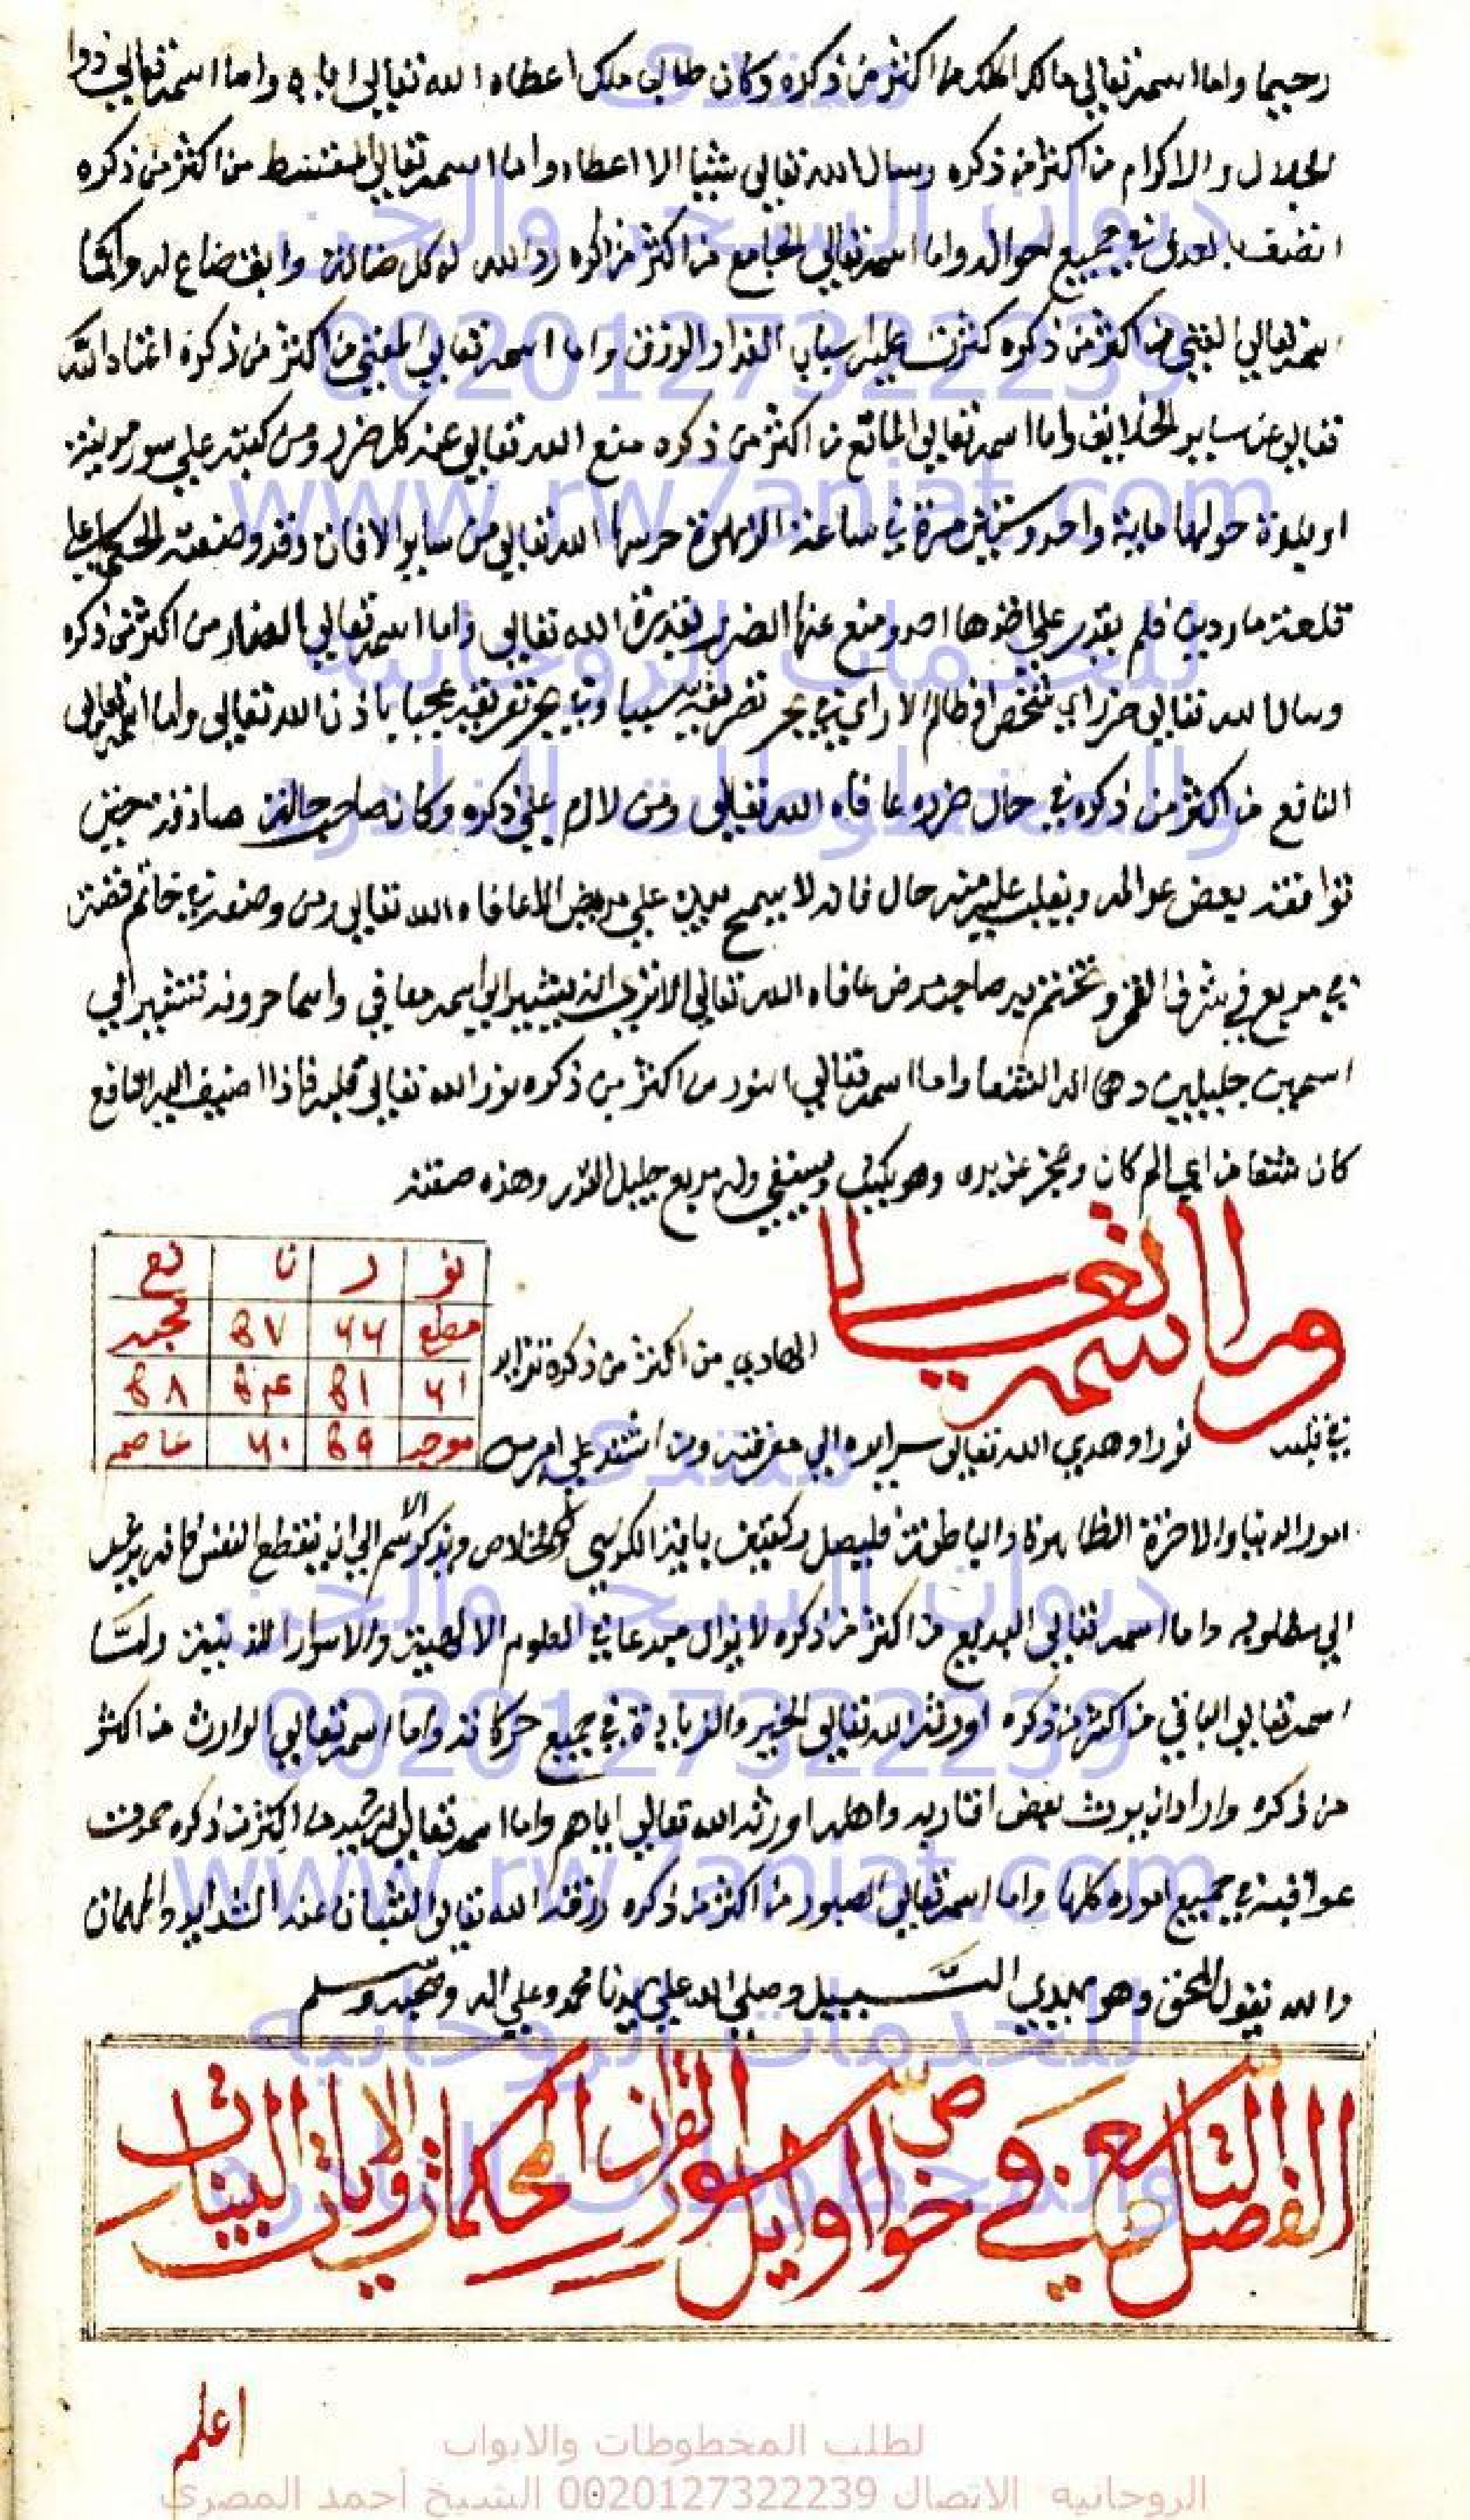 رحيما واما اسمه تعالى مالك الملك من اكثر من ذكره وكان طالب ملك اعطاه الله تعالى اياه واما اسمه تعالى ذوا
الجلال والاكرام من اكثر من ذكره وسال الله تعالى شيئا الا اعطاه واما اسمه تعالى المقسط من اكثر من ذكره
اتصف بالعدل في جميع احواله واما اسمه تعالى الجامع من اكثر من ذكره رد الله له كل ضالة وابق ضاع له واما
اسمه تعالى الغني من اكثر من ذكره كثرت عليه اسباب الغدا والرزق واما اسمه تعالى المغني من اكثر من ذكره اغناه الله
تعالى عن ساير الخلايق واما اسمه تعالى المانع من اكثر من ذكره منع الله تعالى عنه كل ضرر ومن كتبه على سور مدينة
او بلدة حولها ماية واحد وستين مرة في ساعة الزهرة حرسها الله تعالى من ساير الافات وقد وضعته الحكما على
قلعة ماردين فلم يقدر على اخذها احد ومنع عنها الضرر بقدرة الله تعالى واما اسمه تعالى الضار من اكثر من ذكره
وسال الله تعالى ضرر اي شخص ظالم الا راى في عجبا باذن الله تعالى واما اسمه تعالى
النافع من اكثر من ذكره في حال ضره عافاه الله تعالى ومن لازم على ذكره وكان صاحب حالة صادقة حتى
توافقه بعض عوالمه ويغلب عليه منه حال فانه لا يمسح بيده على مريض الا عافاه الله تعالى ومن وضعه في خاتم فضة
في مربع في شرف القمر وتختم به صاحب مرض عافاه الله تعالى الا ترى انه يشير الى اسمه معافي وايما حروفه تشير الى
اسمين جليلين وهما اله الشفا واما اسمه تعالى النور من اكثر من ذكره نور الله تعالى قلبه فاذا اضيف اليه النافع
كان شفا من اي الم كان وعجز عن برءه وهو يكتب ويسقى وله مربع جليل القدر وهذه صفته
واما اسمه تعالى
نو ر نا فع
مطع ٦٦ ٥٧ مجيد
٦١ ٥١ ٥٤ ٥٨
موجد ٥٩ ٦٠ عاصم
الهادي من اكثر من ذكره تزايد
في قلبه نورا وهدي الله تعالى سرايره الى معرفته ومن اشتد عليه امر من
امور الدنيا والاخرة الظاهرة والباطنة فليصل ركعتين باية الكرسي والاخلاص ويذكر الاسم الى ان ينقطع النفس فانه يرشد
الى مطلوبه واما اسمه تعالى البديع من اكثر من ذكره لا يزال مبدعا في العلوم الالهية والاسرار اللدنية واما
اسمه تعالى الباقي من اكثر من ذكره اورثه الله تعالى الخير والزيادة في جميع حركاته واما اسمه تعالى الوارث من اكثر
من ذكره واراد ان يرث بعض اقاربه واهله اورثه الله تعالى اياهم واما اسمه تعالى الرشيد من اكثر من ذكره حمدت
عواقبه في جميع اموره كلها واما اسمه تعالى الصبور من اكثر من ذكره رزقه الله تعالى الثبات عند الشدايد والمهمات
والله يقول الحق وهو يهدي السبيل وصلى الله على سيدنا محمد وعلى اله وصحبه وسلم
الفصل التاسع في خواص اوايل سور القران المحكمات والايات البينات
اعلم
منتدى
ديوان السحر والجن
0020127322239
www.rw7aniat.com
للخدمات الروحانيه
والمخطوطات النادره
منتدى
ديوان السحر والجن
0020127322239
www.rw7aniat.com
للخدمات الروحانيه
والمخطوطات النادره
لطلب المخطوطات والابواب
الروحانيه الاتصال 0020127322239 الشيخ أحمد المصرى